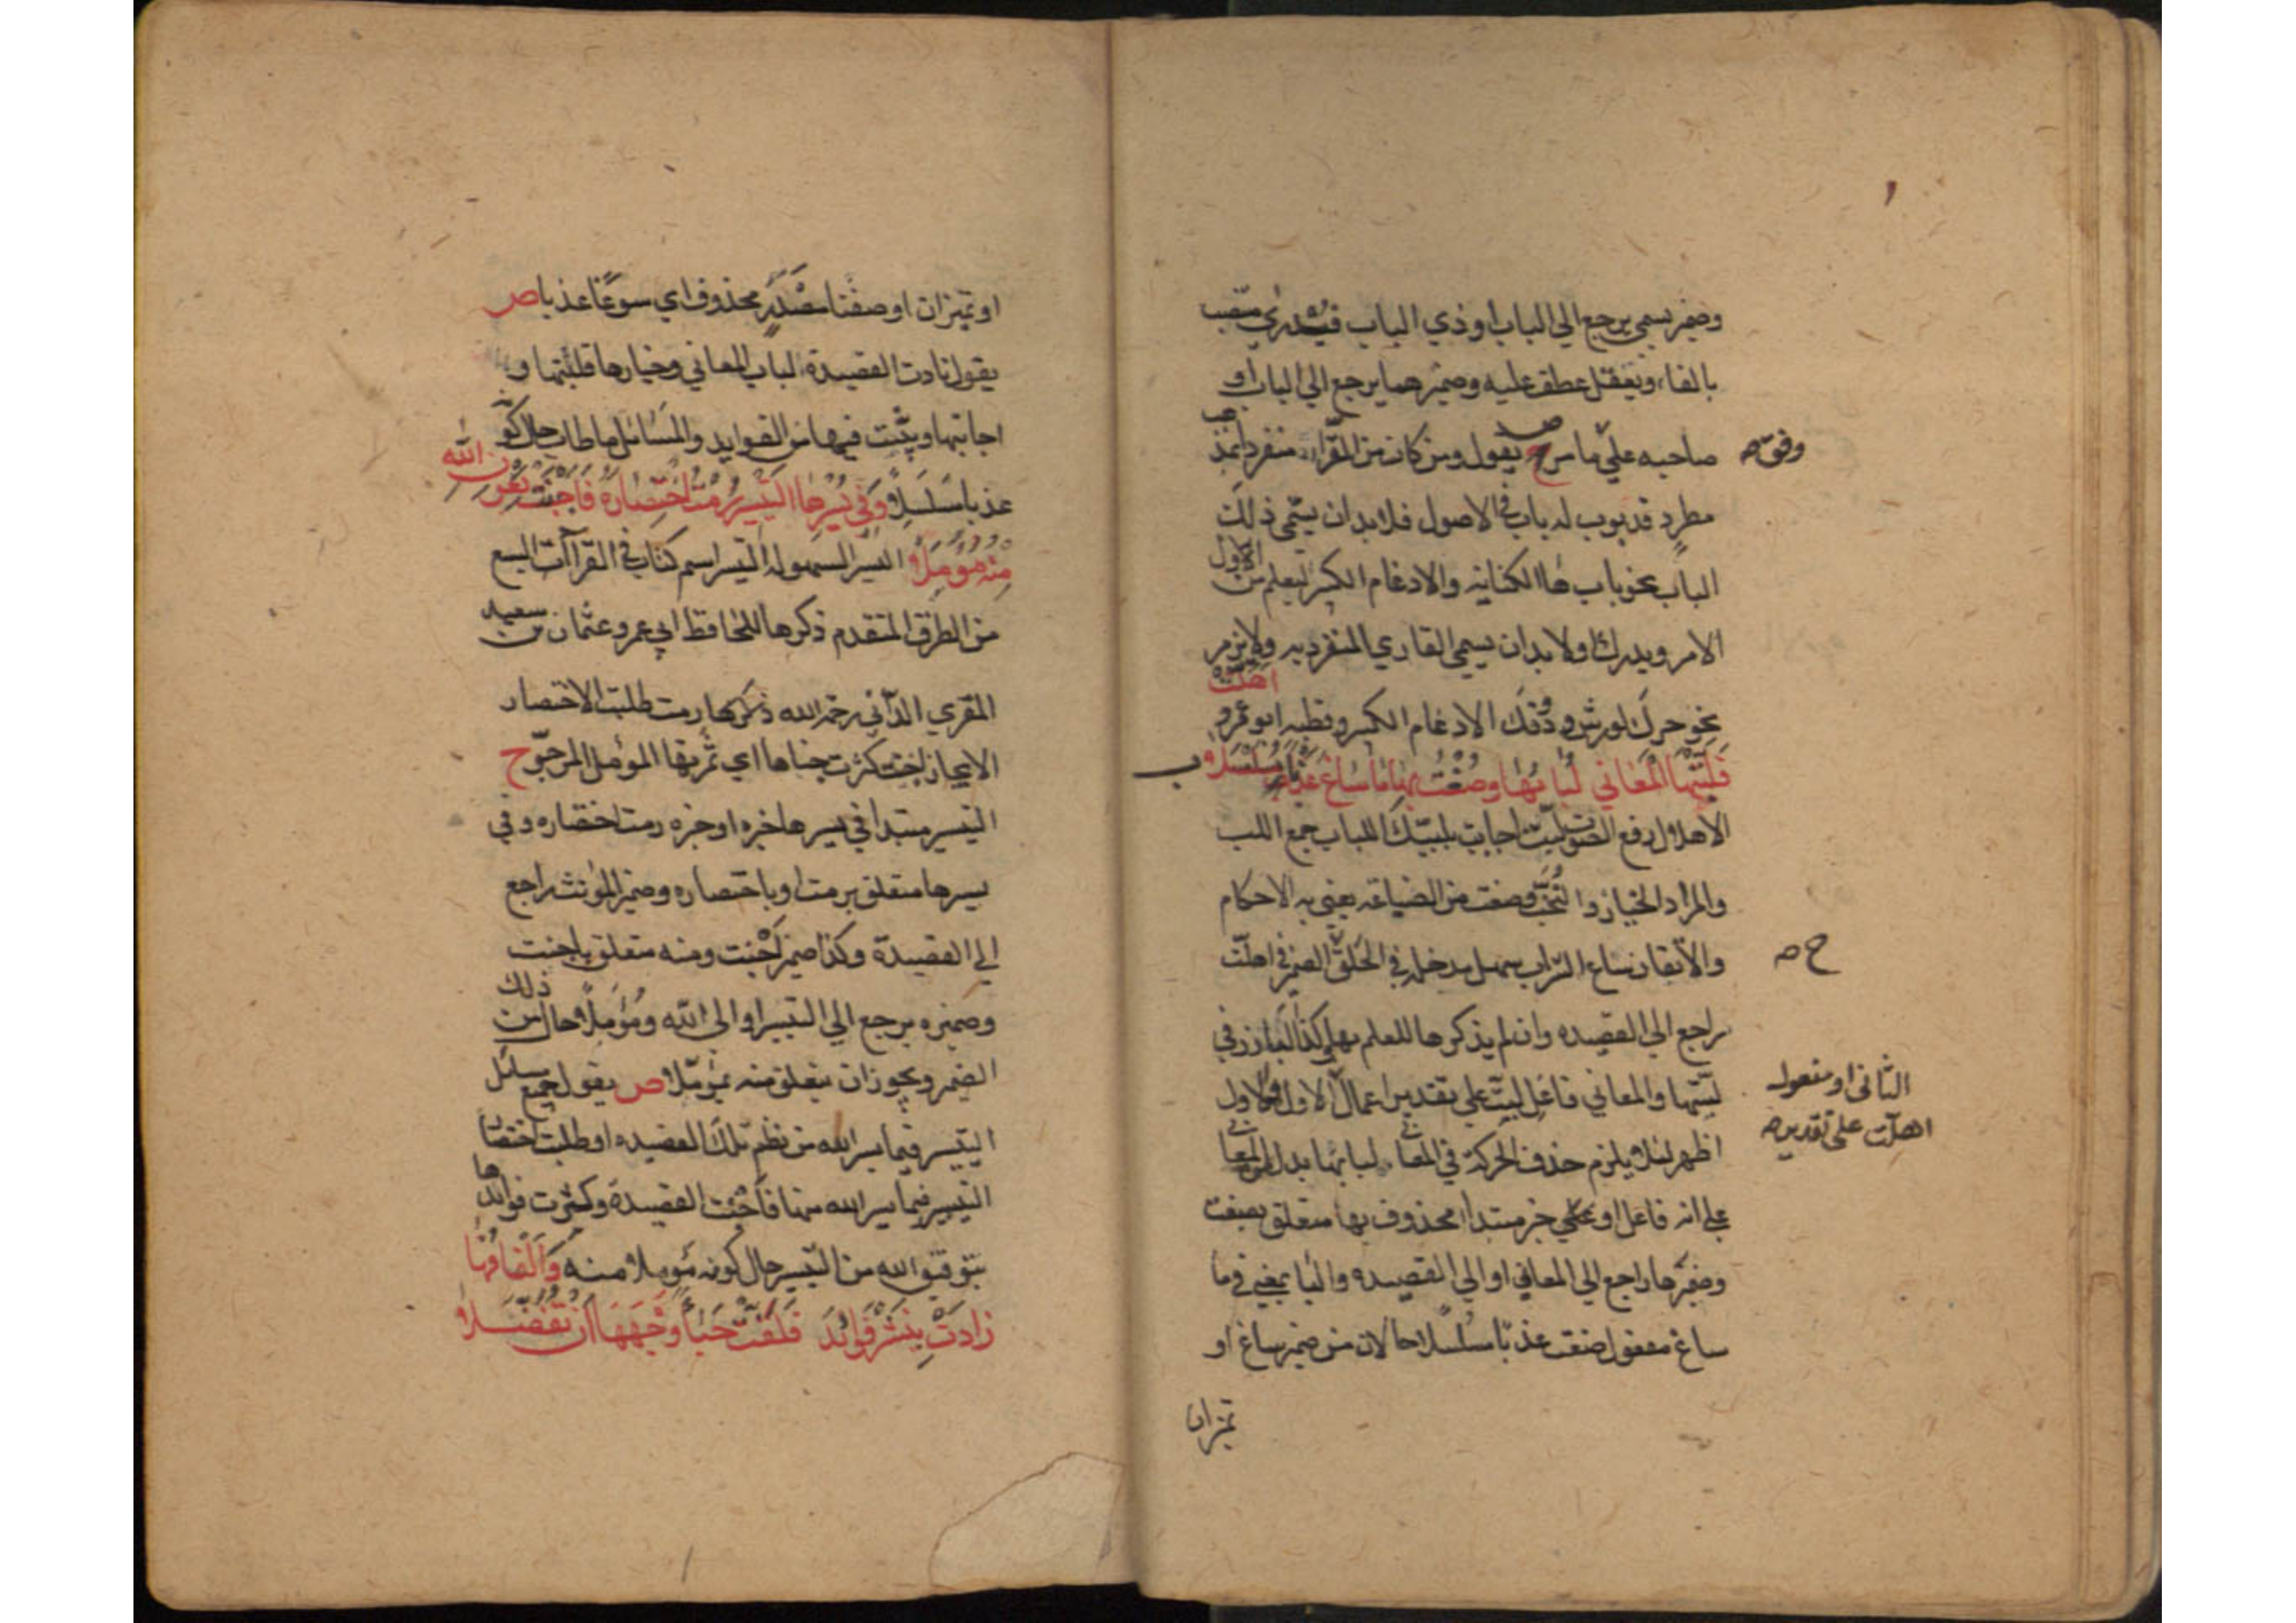 وضمير يسمي يرجع الي الباب او ذي الباب فيدري منتصب
بالفاء ويعقل عطف عليه وضميرهما يرجع الي الباب او
صاحبه علي ما مر ص يقول ومن كان من القراء منفردا بمذهب
وفق صح
مطرد قد بوب له باب في الاصول فلا بد ان يسمي ذلك
الباب نحو باب هاء الكناية والادغام الكبير ليعلم من الاول
الامر ويدرك اولا بد ان يسمي القاري المنفرد به ولا يرمز
نحو حرك لورش ودونك الادغام الكبير وقطبه ابو عمرو
اهلت
فلبتها المعاني لبابها وصغت بها ما ساغ عذبا مسلسلا
الاهلال رفع الصوت لبت اجابت بلبيك اللباب جمع اللب
والمراد الخيار والنخب وصغت من الصياغة يعني به الاحكام
والاتقان ساغ الشراب سهل مدخله في الحلق الضمير في اهلت
ح صح
راجع الي القصيدة وان لم يذكرها للعلم بها وكذا البارز في
لبتها والمعاني فاعل لبت علي تقدير اعمال الاول والاول
الثاني او مفعول
اهلت علي تقدير صح
اظهر لئلا يلزم حذف الحركة في المعاني لبابها بدل المعاني
علي انه فاعل او علي خبر مبتدا محذوف بها متعلق بصغت
وضميرها راجع الي المعاني او الي القصيدة والباء بمعني في وما
ساغ مفعول صغت عذبا مسلسلا حالان من ضمير ساغ او
تميزان
او تميزان او صفتا مصدر محذوف اي سوغا عذبا ص
يقول نادت القصيدة لباب المعاني وخيارها فلبتها و
اجابتها وبثثت فيها من الفوايد والمسائل ما طاب حال كونه
عذبا سلسلا وفي يسرها التيسير رمت اختصاره فاجنت بعون الله
منه مؤملا اليسر السهولة التيسير اسم كتاب في القراآت السبع
من الطرق المتقدم ذكرها للحافظ ابي عمرو عثمان بن سعيد
المقري الداني رحمه الله ذكرها رمت طلبت الاختصار
الايجاز اجنت كثرت جناها اي ثمرتها المؤمل المرجو ح
التيسير مبتدا في يسرها خبره او خبره رمت اختصاره وفي
يسرها متعلق برمت او باختصاره وضمير المؤنث راجع
الي القصيدة وكذا ضمير اجنت ومنه متعلق باجنت
وضميره يرجع الي التيسير او الي الله ومؤملا حال من ذلك
الضمير ويجوز ان يتعلق منه بمؤملا ص يقول جميع مسائل
التيسير فيما يسر الله من نظم تلك القصيدة او طلبت اختصار
التيسير فيما يسر الله منها فاجنت القصيدة وكثرت فوائدها
بتوفيق الله من التيسير حال كونه مؤملا منه والفافها
زادت بنشر فوائد فلفت حياء وجهها ان تفضلا